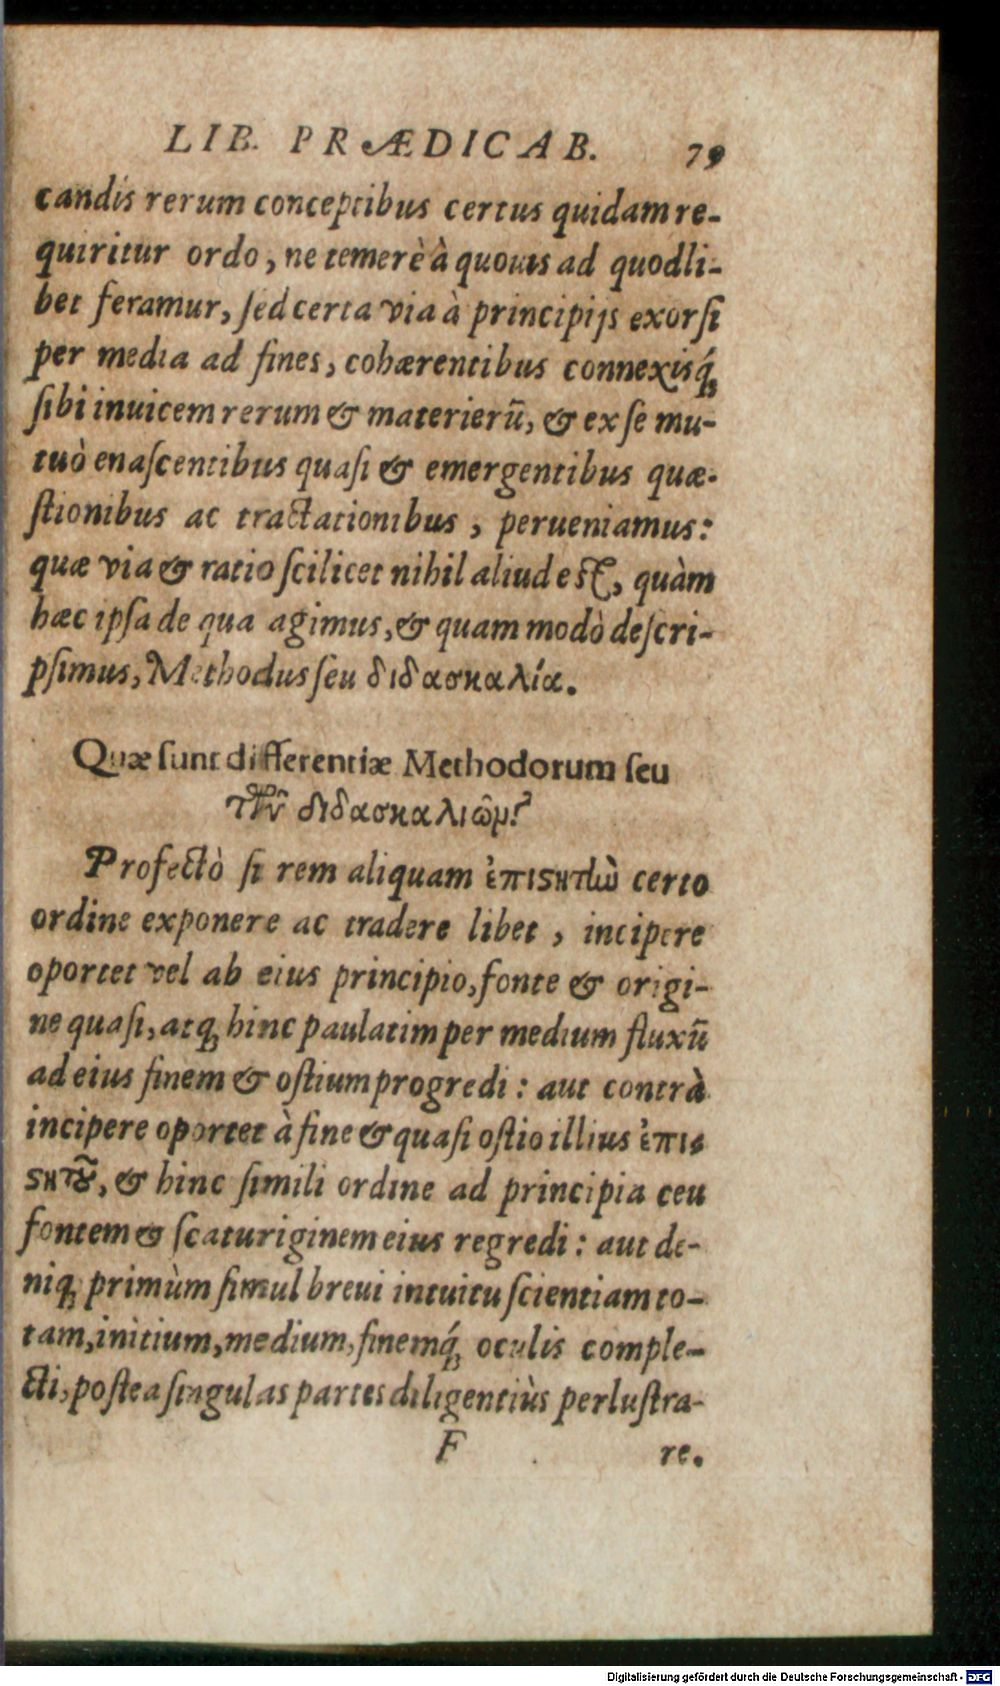 LIB. PRÆDICAB. 79
candis rerum conceptibus certus quidam re-
quiritur ordo, ne temerè à quouis ad quodli-
bet feramur, sed certa via à principijs exorsi
per media ad fines, cohærentibus connexisq́;
sibi inuicem rerum & materierū, & ex se mu-
tuò enascentibus quasi & emergentibus quæ-
stionibus ac tractationibus, perueniamus:
quæ via & ratio scilicet nihil aliud est, quàm
hæc ipsa de qua agimus, & quam modò descri-
psimus, Methodus seu διδασκαλία.
Quæ sunt differentiæ Methodorum seu
τῶν διδασκαλιῶν?
Profectò si rem aliquam ἐπιϛητὼ certo
ordine exponere ac tradere libet, incipere
oportet vel ab eius principio, fonte & origi-
ne quasi, atq; hinc paulatim per medium fluxū
ad eius finem & ostium progredi: aut contrà
incipere oportet à fine & quasi ostio illius ἐπι-
ϛητοῦ, & hinc simili ordine ad principia ceu
fontem & scaturiginem eius regredi: aut de-
niq; primùm simul breui intuitu scientiam to-
tam, initium, medium, finemq́; oculis comple-
cti, postea singulas partes diligentiùs perlustra-
F re.
Digitalisierung gefördert durch die Deutsche Forschungsgemeinschaft - DFG